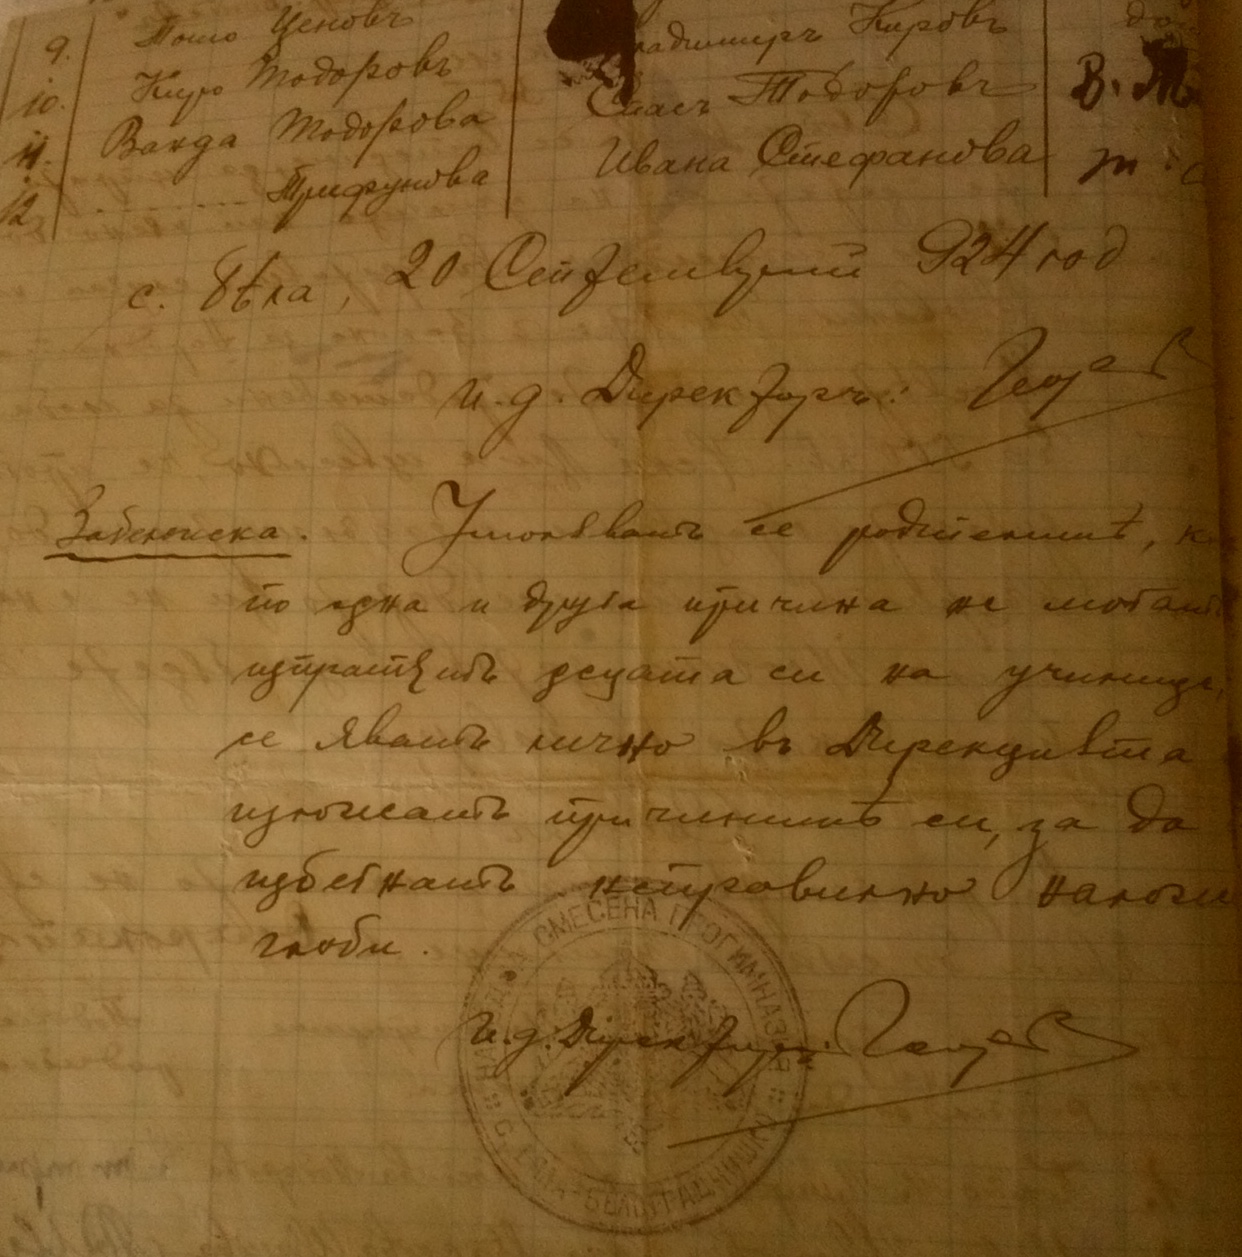 9. Тошо Ценовъ Владимиръ Кировъ до
10. Киро Тодоровъ Спасъ Тодоровъ В.
11. Ванда Тодорова Ивана Стефанова
12 ......... Трифунова
с. бѣла, 20 Септемврий 924 год
И. д. Директоръ:
Забележка. Умоляватъ се родителитѣ, к
по една и друга причина не могатъ
изпратятъ децата си на училище,
се яватъ лично въ Дирекцията
изложатъ причинитѣ си, за да
избегнатъ неправилно наложи
глоби.
СМЕСЕНА ПРОГИМНАЗИЯ
И. д. Директоръ:
БЕЛОГРАДЧИШКА